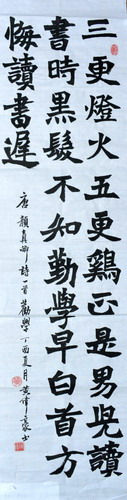 三更燈火五更鷄正是男児讀
書時黒髪不知勤學早白首方
悔讀書遲
唐顔真卿詩一首勸學丁酉夏月黄偉豪书